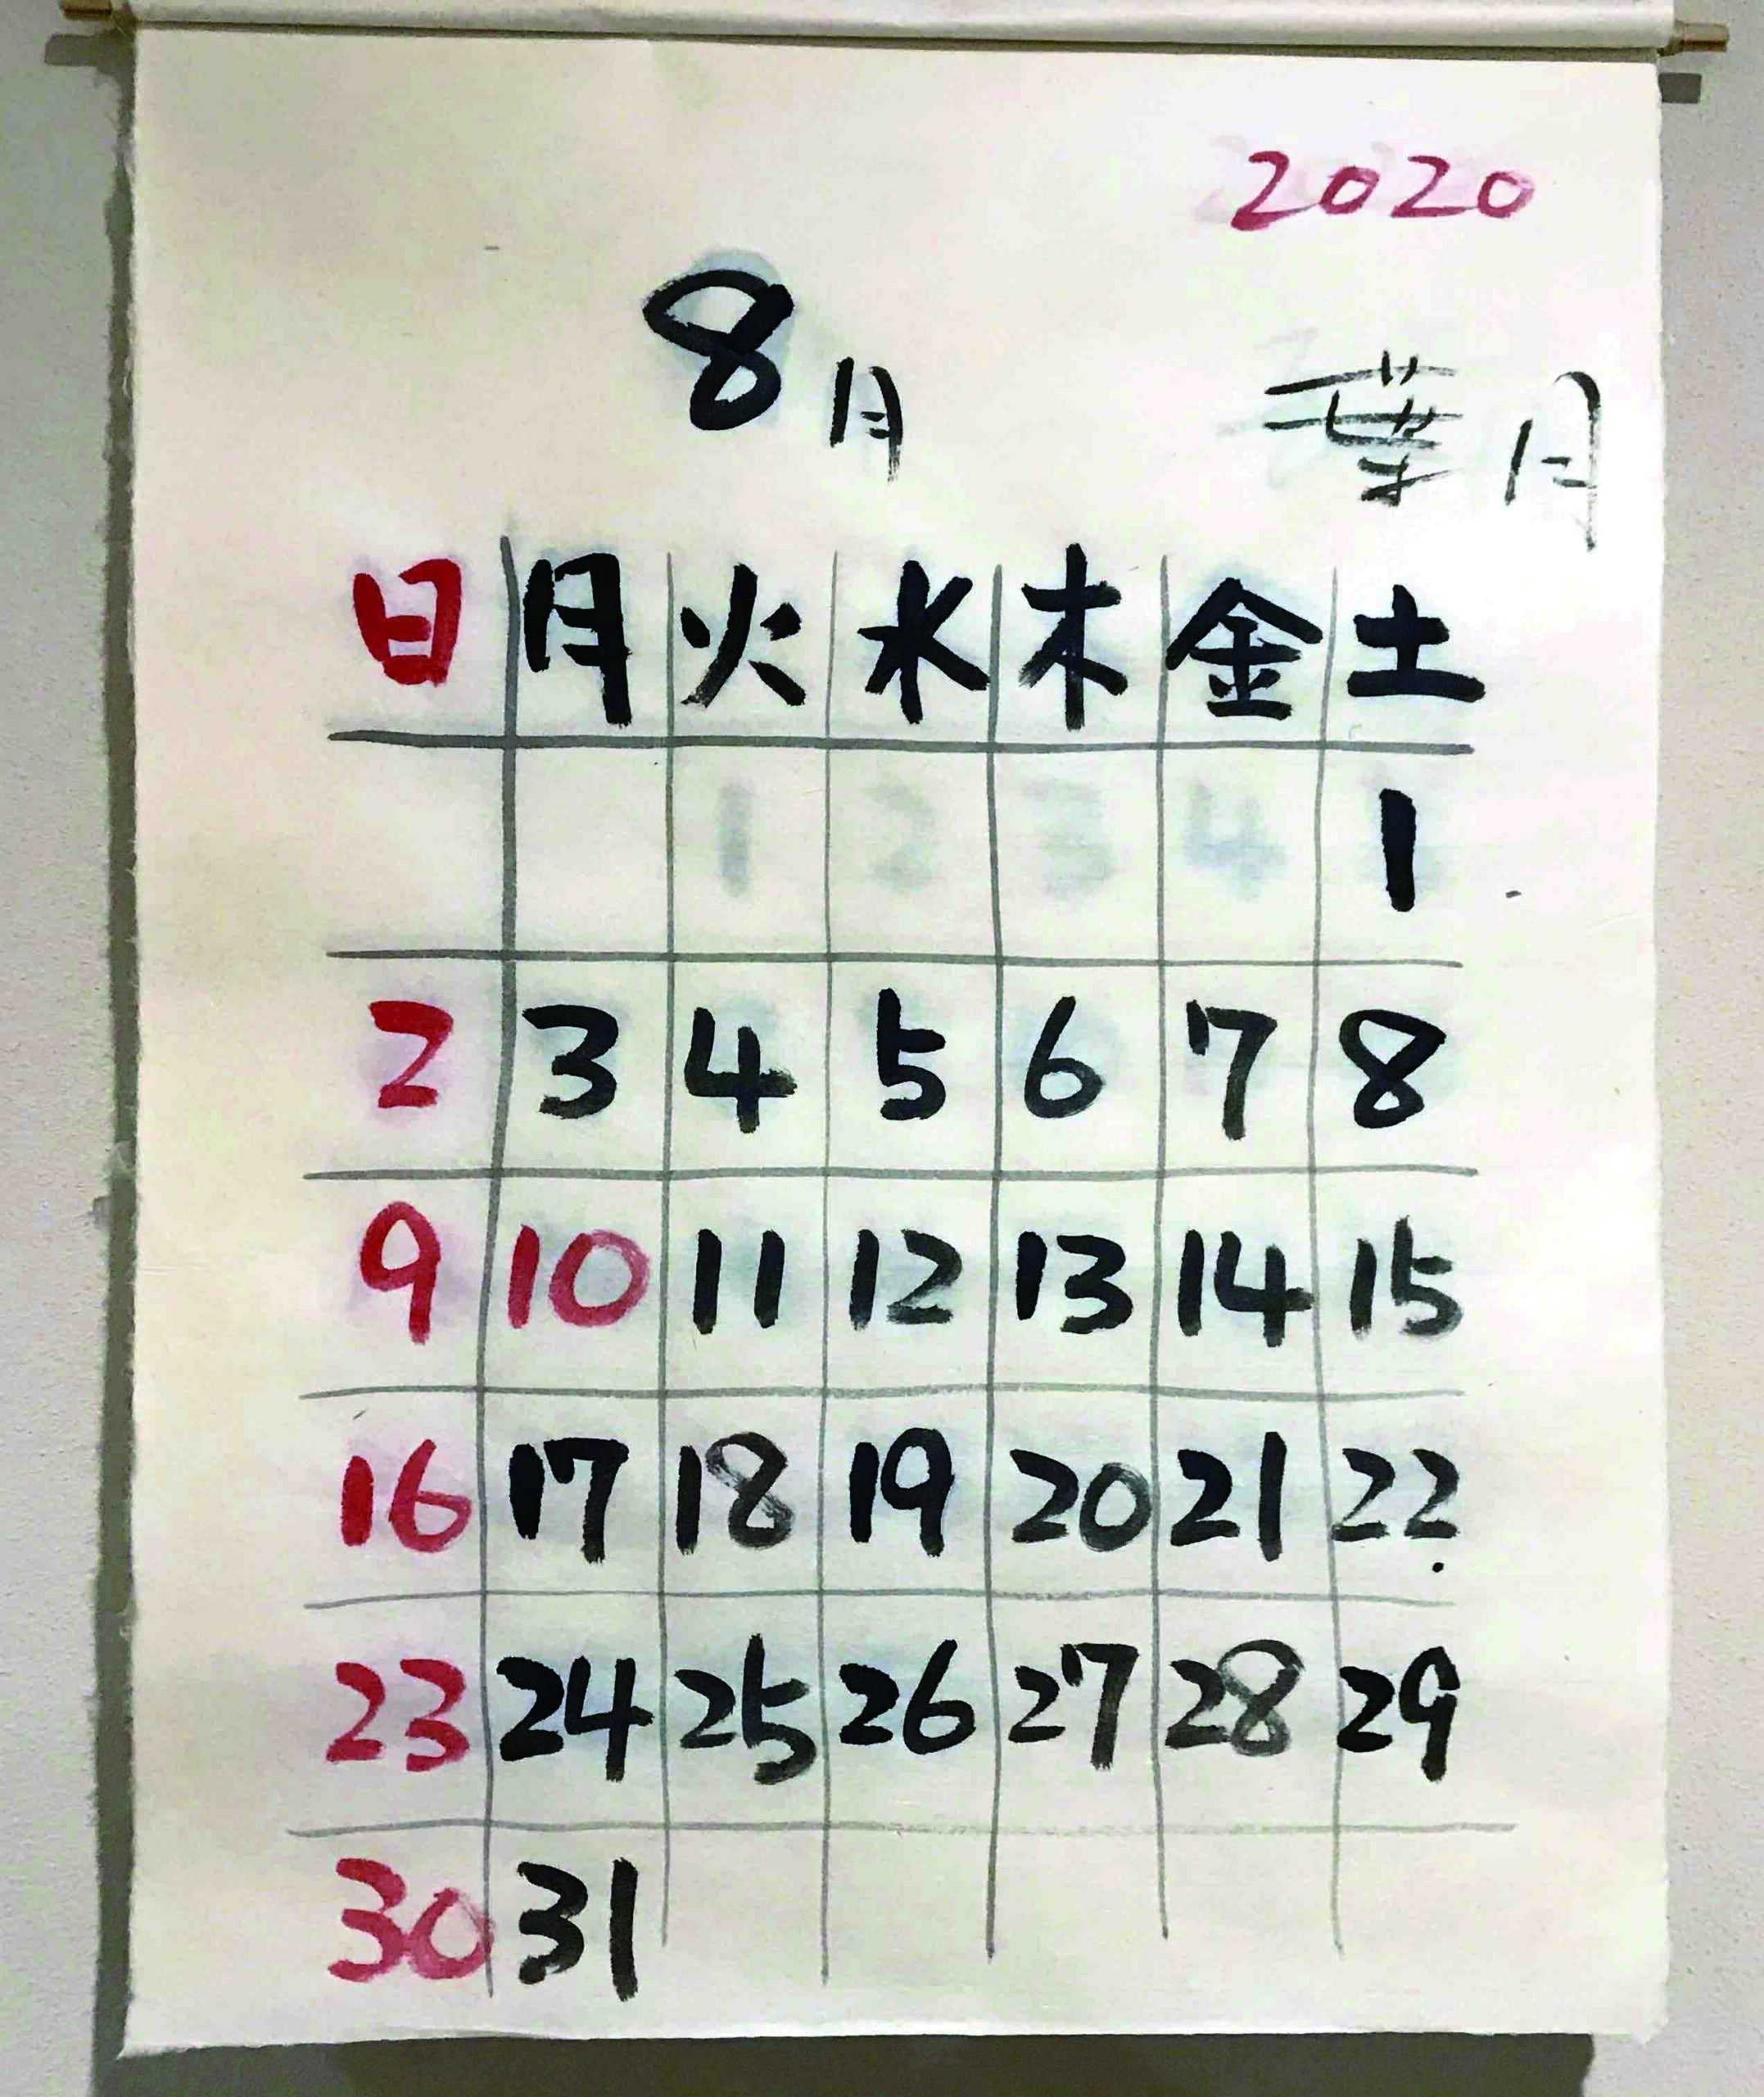 2020
8月 葉月
日 月 火 水 木 金 土
1 2 3 4 1
2 3 4 5 6 7 8
9 10 11 12 13 14 15
16 17 18 19 20 21 22
23 24 25 26 27 28 29
30 31